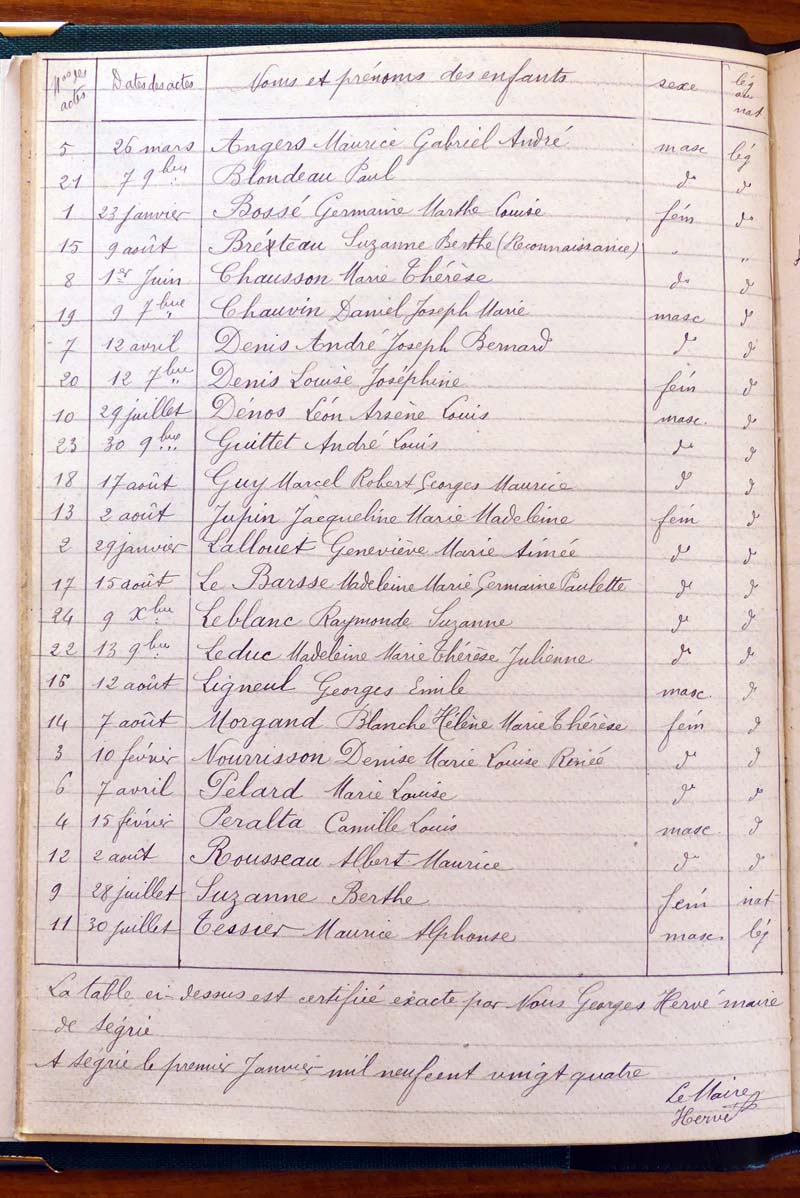 Nos des actes Dates des actes Noms et prénoms des enfants sexe lég ou nat
5 26 mars Angers Maurice Gabriel André masc lég
21 7 9bre Blondeau Paul do do
1 23 janvier Bossé Germaine Marthe Louise fém do
15 9 août Bréteau Suzanne Berthe (Reconnaissance) " "
8 1er Juin Chausson Marie Thérèse do d
19 9 7bre Chauvin Daniel Joseph Marie masc d
7 12 avril Denis André Joseph Bernard do d
20 12 7bre Denis Louise Joséphine fém d
10 29 juillet Dénos Léon Arsène Louis masc. d
23 30 9bre Guittet André Louis do d
18 17 août Guy Marcel Robert Georges Maurice do d
13 2 août Jupin Jacqueline Marie Madeleine fém d
2 29 janvier Lallouet Geneviève Marie Aimée do do
17 15 août Le Barsse Madeleine Marie Germaine Paulette do do
24 9 Xbre Leblanc Raymonde Suzanne do do
22 13 9bre Leduc Madeleine Marie Thérèse Julienne do do
16 12 août Ligneul Georges Emile masc. d
14 7 août Morgand Blanche Hélène Marie Thérèse fém d
3 10 février Nourrisson Denise Marie Louise Renée do d
6 7 avril Pelard Marie Louise do do
4 15 février Peralta Camille Louis masc. d
12 2 août Rousseau Albert Maurice do d
9 28 juillet Suzanne Berthe fém nat
11 30 juillet Tessier Maurice Alphonse masc. lég
La table ci-dessus est certifiée exacte par Nous Georges Hervé maire
de Ségrie
A Ségrie le premier Janvier mil neuf cent vingt quatre
Le Maire
Hervé